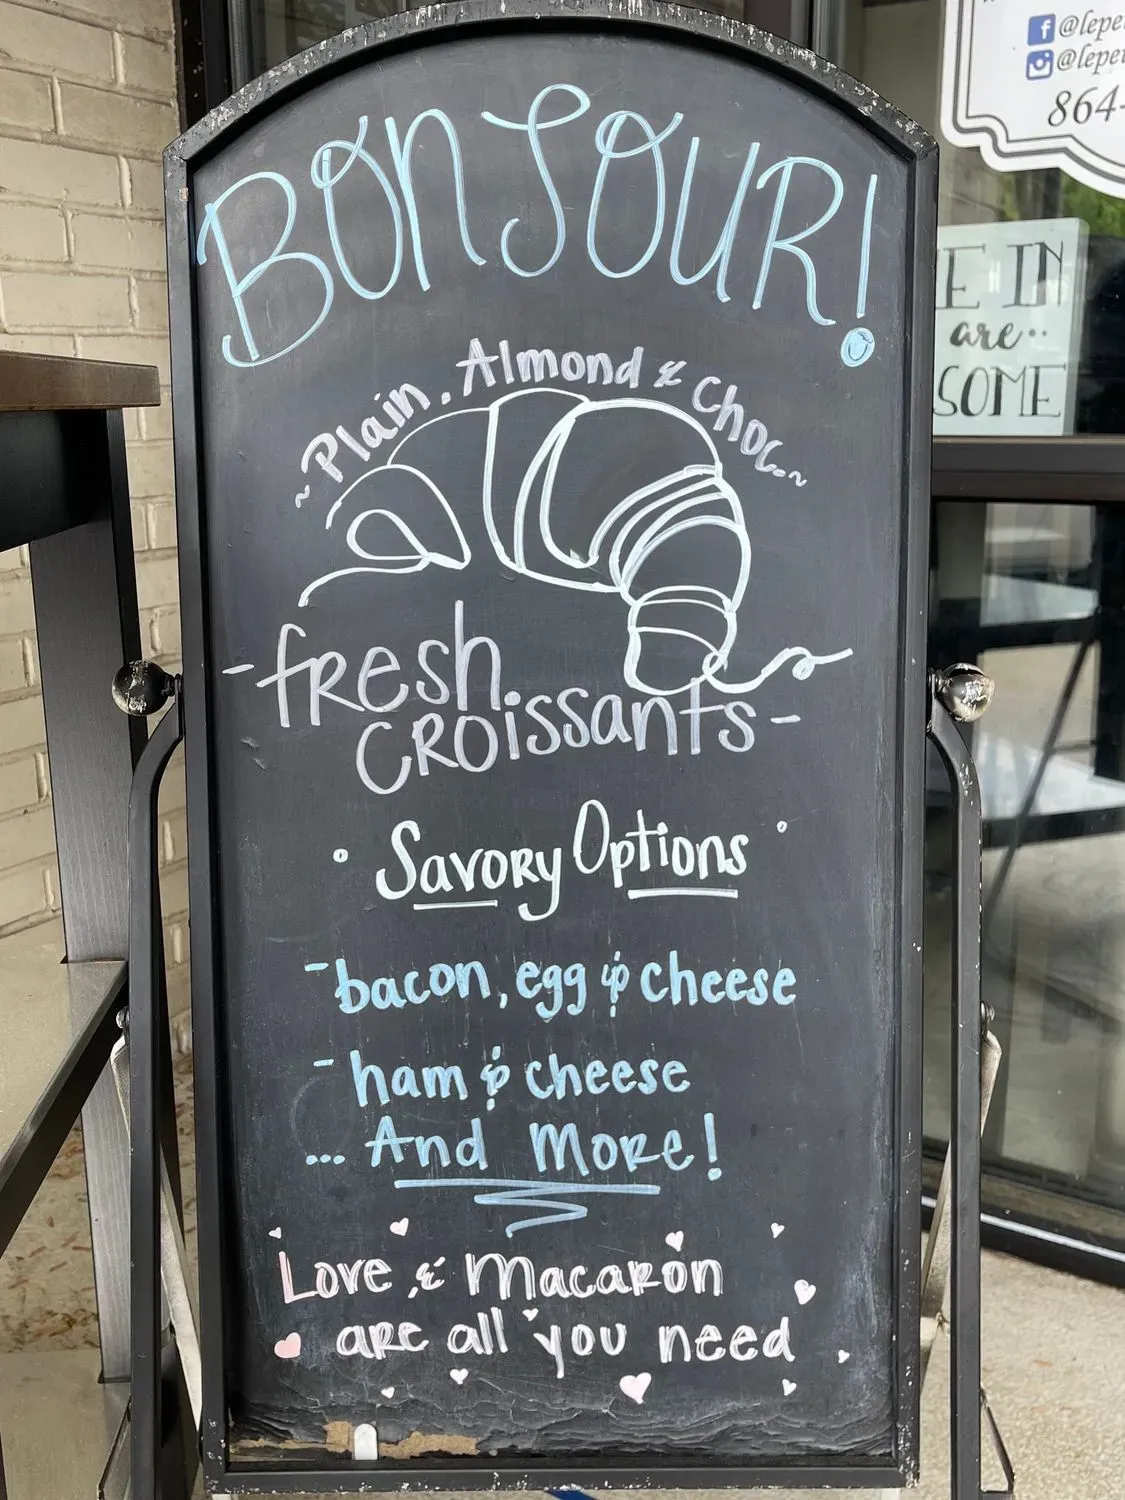 BONJOUR!
~Plain, Almond & Choc.~
-fresh
croissants-
Savory Options
-bacon, egg & cheese
-ham & cheese
... And More!
Love & Macaron
are all you need
864-
E IN
are..
SOME